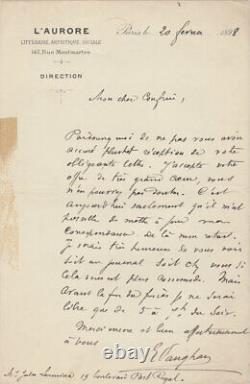 L'AURORE
LITTÉRAIRE, ARTISTIQUE, SOCIALE
142, Rue Montmartre
DIRECTION
Paris le 20 février 1898
Mon cher Confrère,
Pardonnez moi de ne pas vous avoir
accusé plustot réception de votre
obligeante lettre. J'accepte votre
offre de très grand cœur, vous
n'en pouvez pas douter. C'est
aujourd'hui seulement qu'il m'est
possible de mettre à jour ma
correspondance. De là mon retard.
Je serais très heureux de vous voir
soit au journal soit chez vous si
cela vous est plus commode. Mais
avant la fin du procès je ne serai
libre que de 5 à 7h du soir.
Merci encore et bien affectueusement
à vous
E. Vaughan
Mr Jules 19 boulevard Port Royal
© ebay